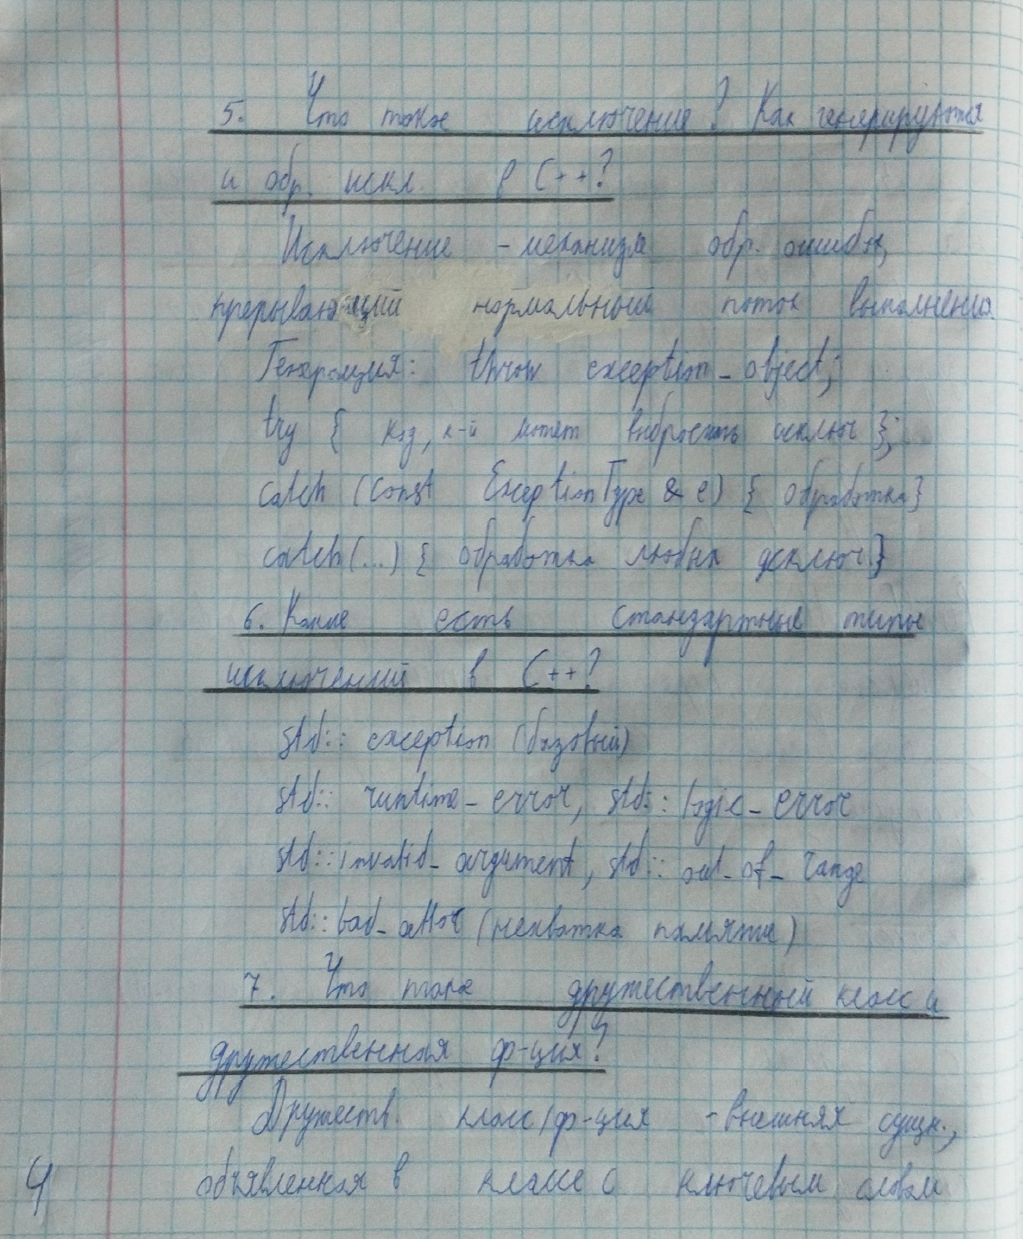 5. Что такое исключение? Как генерируются
и обр. искл. в C++?
Исключение - механизм обр. ошибок,
прерывающий нормальный поток выполнения.
Генерация: throw exception_object;
try { код, к-й может выбросить исключ };
catch (const ExceptionType & e) { обработка}
catch(...) { обработка любых исключ.}
6. Какие есть стандартные типы
исключений в C++?
std:: exception (базовый)
std:: runtime_error, std:: logic_error
std:: invalid_argument, std:: out_of_range
std:: bad_alloc (нехватка памяти)
7. Что такое дружественный класс и
дружественная ф-ция?
Дружеств. класс/ф-ция - внешняя сущн.,
объявленная в классе с ключевым словом
4